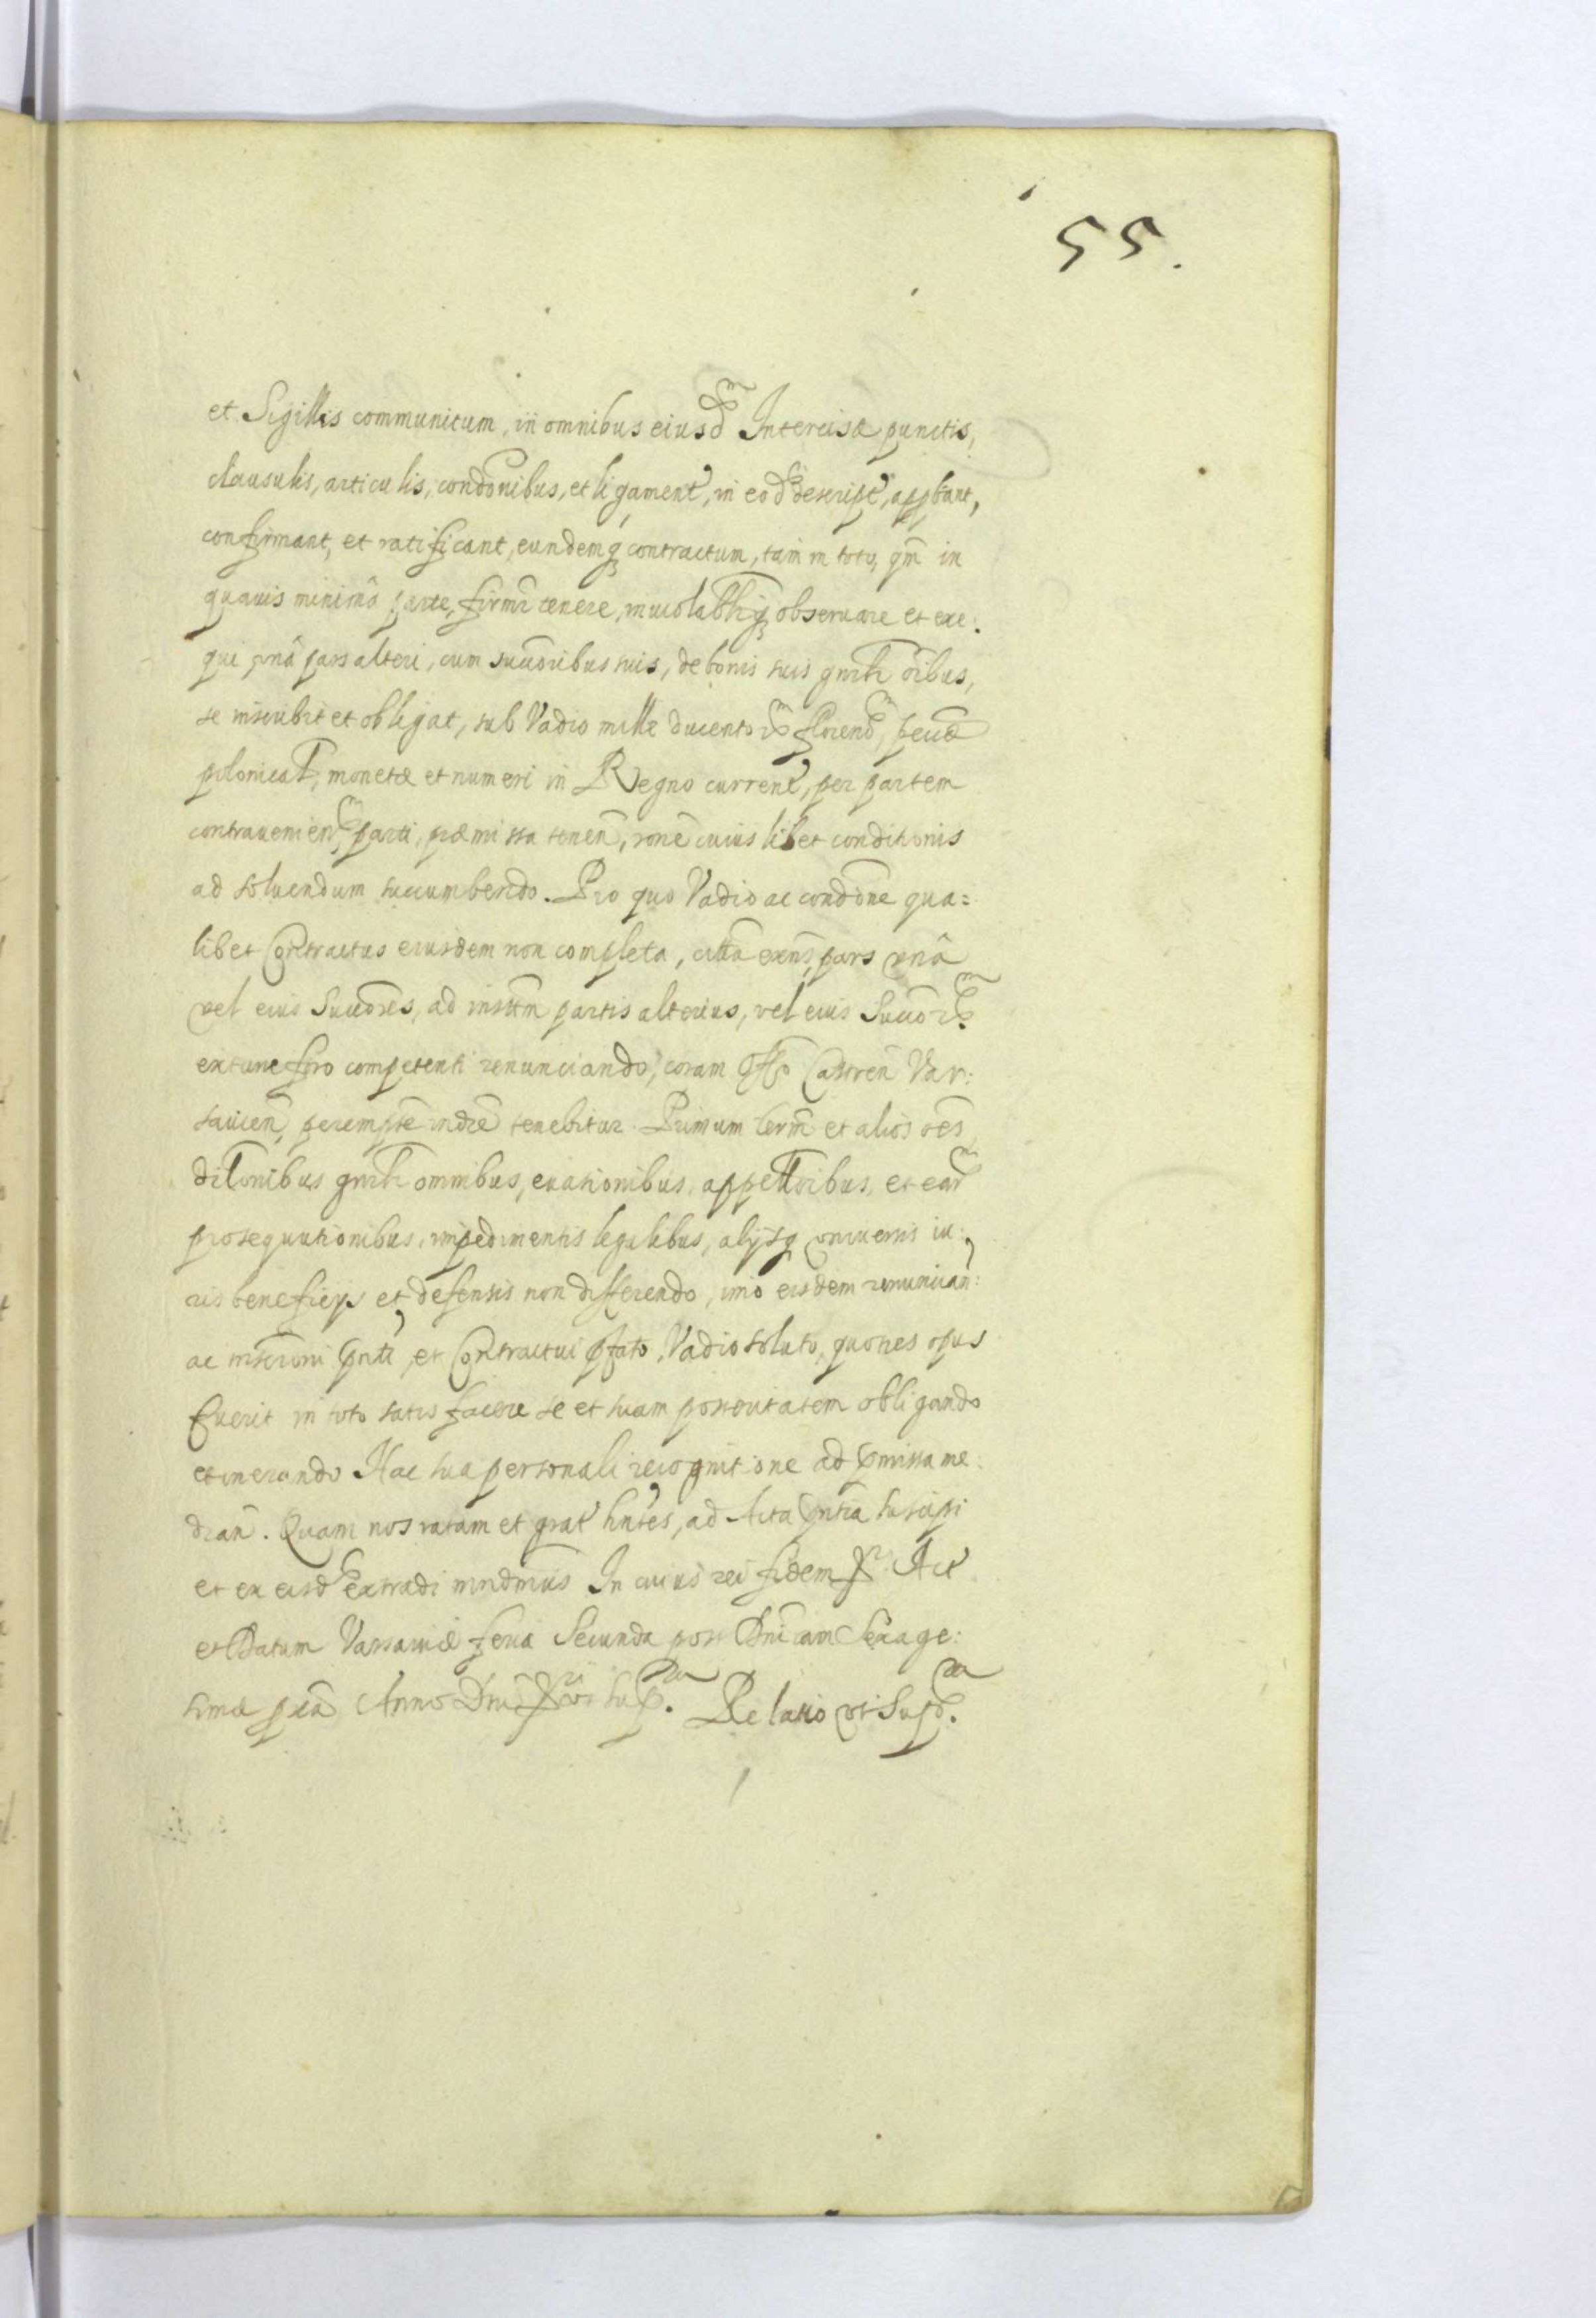 55.
et Sigillis communitum, in omnibus eiusd^m Intercisæ punctis,
clausulis, articulis, condõnibus, et ligament, in eod descript, appbant,
confirmant, et ratificant, eundemq contractum, tam in toto, qm̃ in
quauis minima parte, firmr̃ tenere, inuiolabĩlrq obseruare et exe:
qui, vna pars alteri, cum succoribus suis, de bonis suis gnrl̃r õibus,
se inscribit et obligat, sub Vadio mille ducentor^m florenor^m, pecuæ
polonical, monetæ et numeri in Regno current, per partem
contrauenien^m, parti, præmissa tenen̄, rone cuius libet conditionis
ad soluendum succumbendo. Pro quo Vadio ac condõne qua=
libet Contractus eiusdem non completa, citta exñs, pars vna
vel eius Succores, ad instm̃ partis alterius, vel eius Succor^m
extunc foro competenti renunciando, coram Offo Castren̄ Var:
sauien, perempte indre tenebitur. Primum term̃ et alios oẽs
diltonibus gnrl̃r omnibus, euasionibus, appelltoribus, et ear^m
prosequutionibus, impedimentis legalibus, alijsq vniuersis iu:
ris beneficijs et defensis non differendo, imo eisdem renuncian:
ac inscrõni pñti, et Contractui pfato, Vadio soluto, quoties opus
fuerit in toto satisfacere se et suam posteritatem obligando
et onerando Hac sua personali recognitione ad pmissa me:
dian̄. Quam nos ratam et grat hntes, ad Acta pñtia suscipi
et ex eisd extradi mndmus In cuius rei fidem Act
et Datum Varsauiæ feria Secunda post Dnicam Sexage:
simæ pxa Anno Dni sup^ra. Relatio vt Sup^ra.